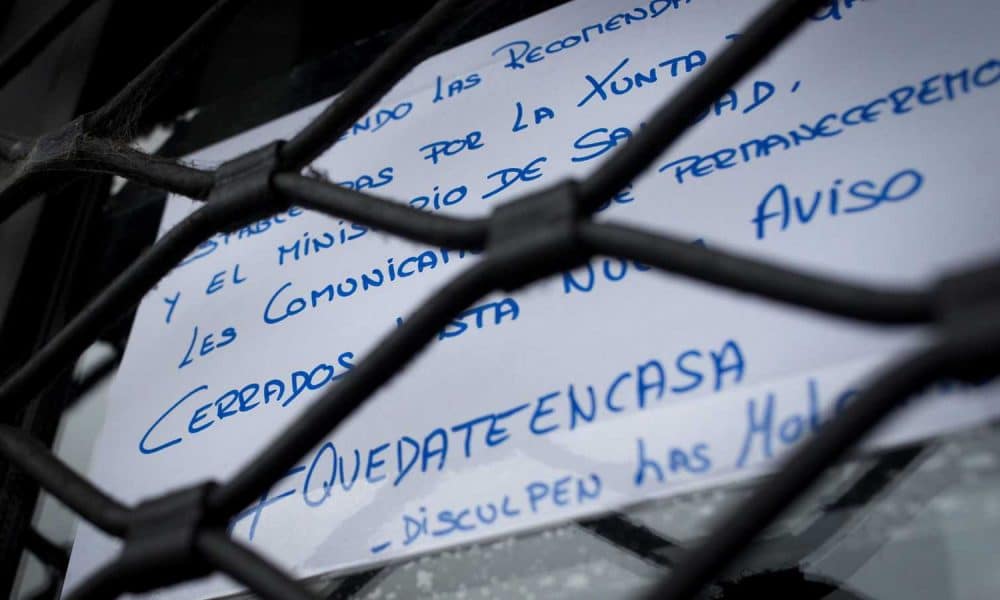 LAS RECOMENDA
POR LA XUNTA
Y EL MINISTERIO DE SANIDAD,
LES COMUNICAM PERMANECEREMO
CERRADOS HASTA AVISO
#QUEDATEENCASA
- DISCULPEN LAS MOL